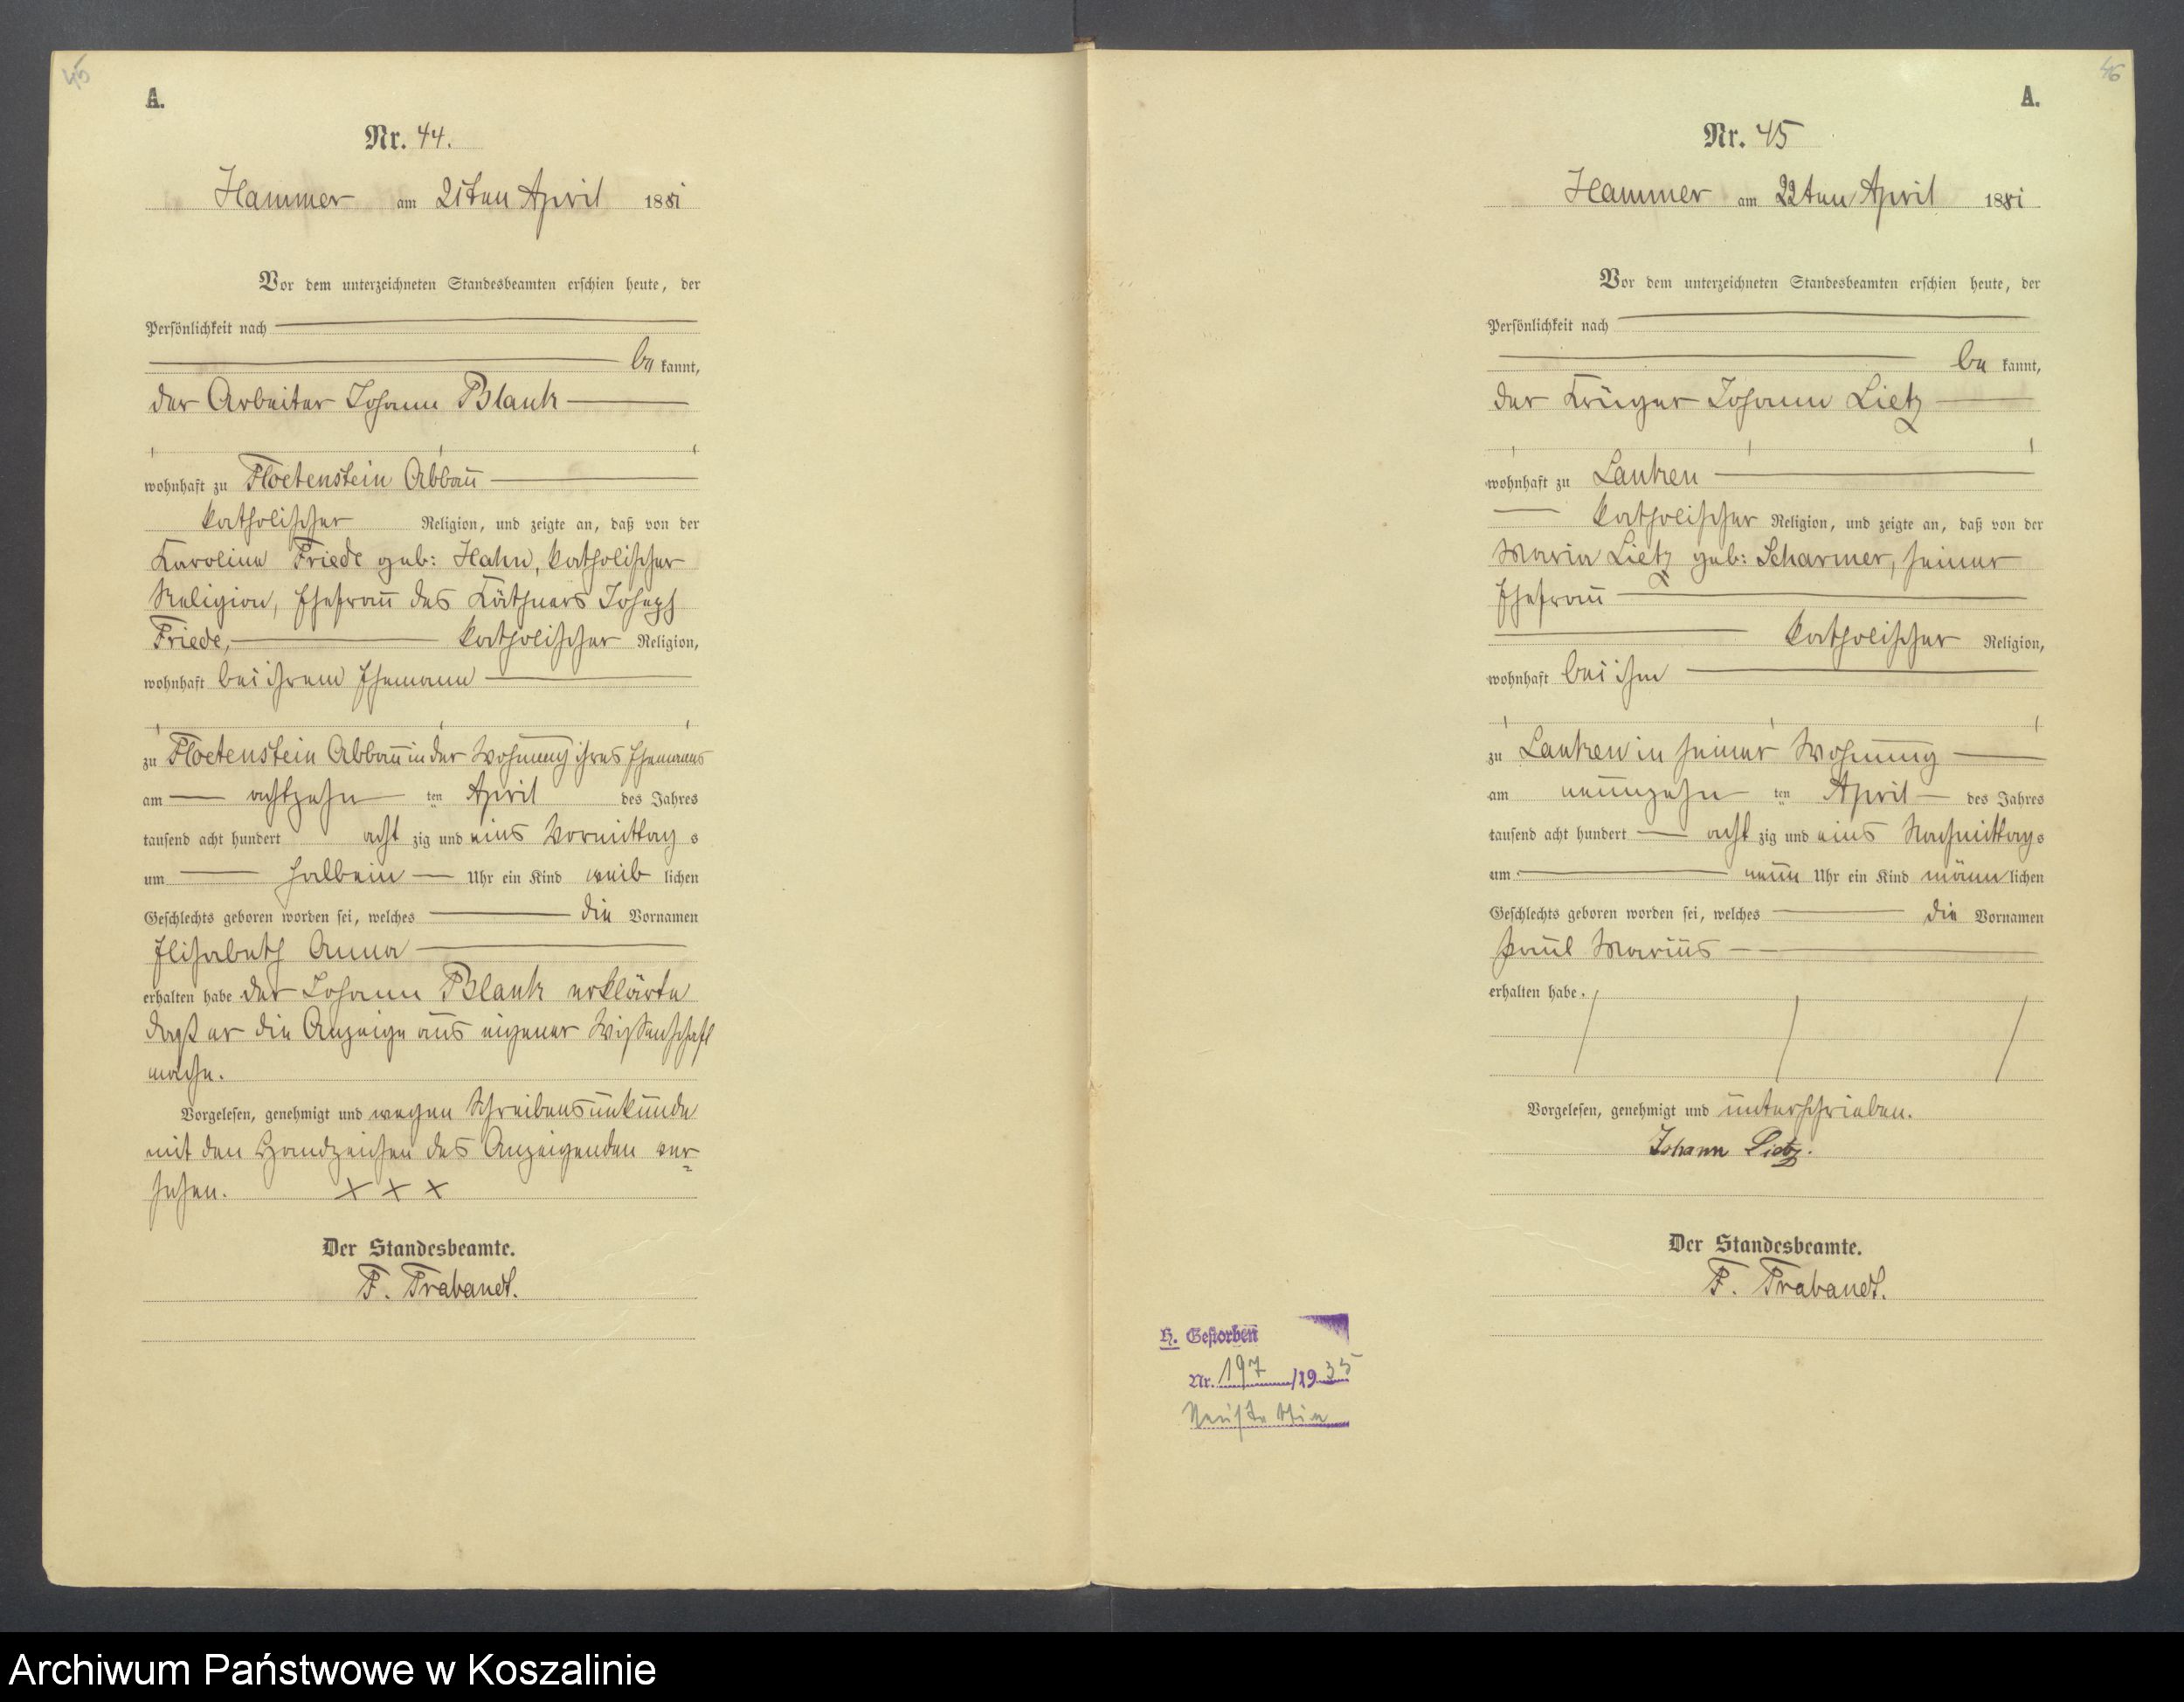 45
A.
Nr. 44.
Hammer am 21ten April 1881
Vor dem unterzeichneten Standesbeamten erschien heute, der
Persönlichkeit nach
bekannt,
der Arbeiter Johann Blank
wohnhaft zu Floetenstein Abbau
katholischer Religion, und zeigte an, daß von der
Karoline Friede geb: Hahn, katholischer
Religion, Ehefrau des Käthners Joseph
Friede, katholischer Religion,
wohnhaft bei ihrem Ehemann
zu Floetenstein Abbau in der Wohnung ihres Ehemanns
am achtzehn ten April des Jahres
tausend acht hundert acht zig und eins Vormittags
um halbein Uhr ein Kind weiblichen
Geschlechts geboren worden sei, welches die Vornamen
Elisabeth Anna
erhalten habe der Johann Blank erklärte
daß er die Anzeige aus eigener Wissenschaft
mache.
Vorgelesen, genehmigt und wegen Schreibensunkunde
mit den Handzeichen des Anzeigenden ver=
sehen. X X X
Der Standesbeamte.
F. Trabandt.
46
A.
Nr. 45
Hammer am 22ten April 1881
Vor dem unterzeichneten Standesbeamten erschien heute, der
Persönlichkeit nach
bekannt,
der Krüger Johann Lietz
wohnhaft zu Lanken
katholischer Religion, und zeigte an, daß von der
Maria Lietz geb: Scharmer, seiner
Ehefrau
katholischer Religion,
wohnhaft bei ihm
zu Lanken in seiner Wohnung
am neunzehn ten April des Jahres
tausend acht hundert acht zig und eins Nachmittags
um neun Uhr ein Kind männlichen
Geschlechts geboren worden sei, welches die Vornamen
Paul Marius
erhalten habe.
Vorgelesen, genehmigt und unterschrieben.
Johann Lietz.
Der Standesbeamte.
F. Trabandt.
H. Gestorben
Nr. 197/1935
Neustettin
Archiwum Państwowe w Koszalinie